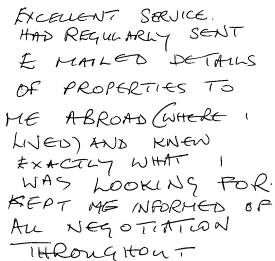 EXCELLENT SERVICE.
HAD REGULARLY SENT
E MAILED DETAILS
OF PROPERTIES TO
ME ABROAD (WHERE I
LIVED) AND KNEW
EXACTLY WHAT I
WAS LOOKING FOR.
KEPT ME INFORMED OF
ALL NEGOTIATION
THROUGHOUT